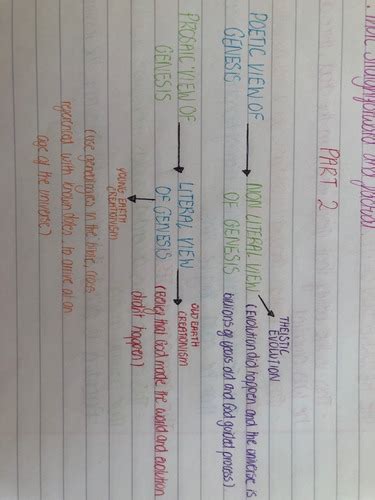 straightforward and
PART 2
THEISTIC
EVOLUTION
POETIC VIEW OF
GENESIS
NON LITERAL VIEW
OF GENESIS
(Evolution did happen and the universe is
billions of years old and God guided process)
OLD EARTH
CREATIONISM
PROSAIC VIEW OF
GENESIS
LITERAL VIEW
OF GENESIS
(Belief that God made the world and evolution
didn't happen)
YOUNG EARTH
CREATIONISM
(use genealogies in the bible, cross
referenced with known dates, to arrive at an
age of the universe)